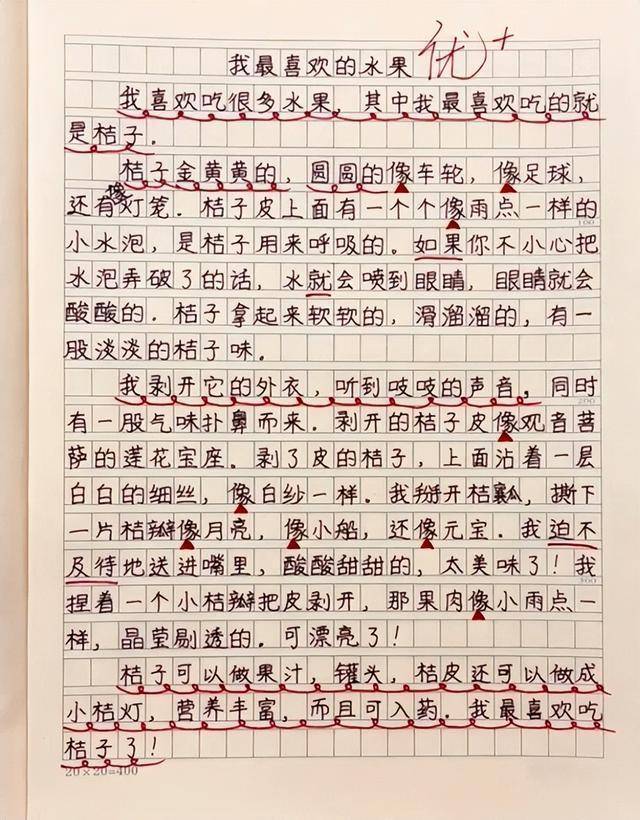 我最喜欢的水果 优+
我喜欢吃很多水果，其中我最喜欢吃的就
是桔子。
桔子金黄黄的，圆圆的像车轮，像足球，
还有像灯笼．桔子皮上面有一个个像雨点一样的
100
小水泡，是桔子用来呼吸的。如果你不小心把
水泡弄破了的话，水就会喷到眼睛，眼睛就会
酸酸的．桔子拿起来软软的，滑溜溜的，有一
股淡淡的桔子味。
我剥开它的外衣，听到吱吱的声音，同时
200
有一股气味扑鼻而来．剥开的桔子皮像观音菩
萨的莲花宝座。剥了皮的桔子，上面沾着一层
白白的细丝，像白纱一样。我掰开桔瓤，撕下
一片桔瓣像月亮，像小船，还像元宝。我迫不
及待地送进嘴里，酸酸甜甜的，太美味了！我
300
捏着一个小桔瓣把皮剥开，那果肉像小雨点一
样，晶莹剔透的。可漂亮了！
桔子可以做果汁，罐头，桔皮还可以做成
小桔灯，营养丰富，而且可入药．我最喜欢吃
桔子了！
20×20=400